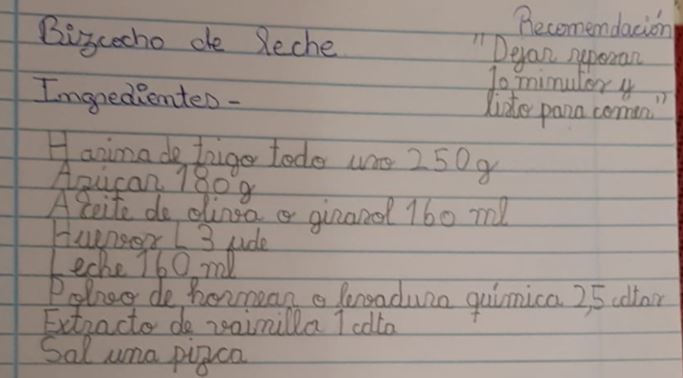 Bizcocho de leche
Recomendación
"Dejar reposar
10 minutos y
listo para comer"
Ingredientes-
Harina de trigo todo uso 250g
Azúcar 180g
Aceite de oliva o girasol 160 ml
Huevos L 3 ude
Leche 160 ml
Polvo de hornear o levadura química 2,5 cdtas
Extracto de vainilla 1 cdta
Sal una pizca